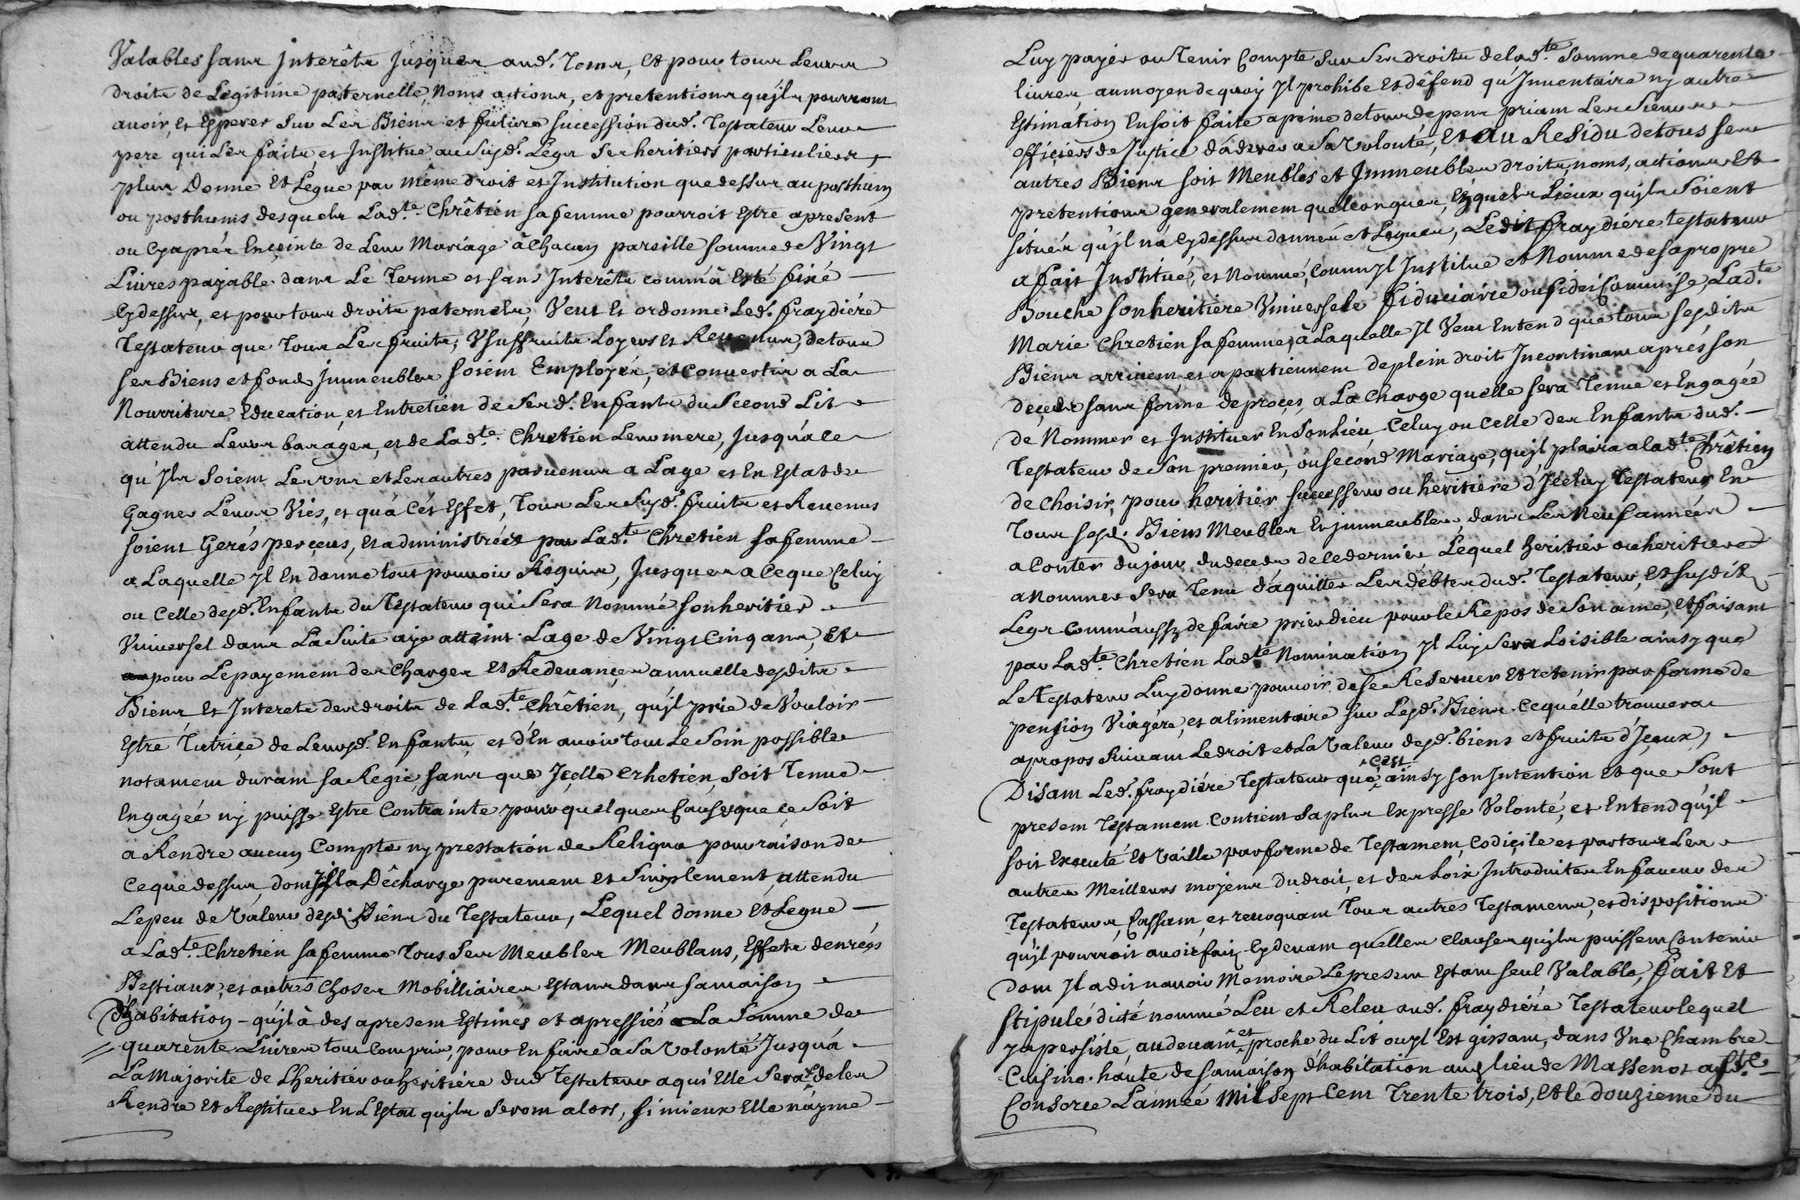 Valables sans Interêts Jusques aud. Tems, et pour tous Leurs
droits de Legitime paternelle, Noms actions, et pretentions qu'ils pourront
avoir et Esperer sur Les Biens et future succession dud. Testateur Leur
pere qui Les faits et Institue au susd. Legs ses heritiers particuliers,
plus Donne et Legue par même droit et Institution que dessus au posthum
ou posthums desquels Lad.te Chrêtien sa femme pourroit Estre apresent
ou Cyaprés Enceinte de Leur Mariage à Chacun pareille somme de Vingt
Livres payable dans Le Terme et sans Interêts comm'à Esté fixé
Cydessus, et pour tous droits paternels, Veut Et ordonne Led. fraydiére
Testateur que Tous Les fruits, Usuffruits Loyers et Revenus, de tous
ses Biens et fonds Immeubles soient Employés, et Convertis a La
Nourriture Education, et Entretien de Sesd. Enfants du Second Lit
attendu Leurs bas ages, et de Lad.te Chretien Leur mere, Jusqu'a ce
qu'Ils soient Les uns et Les autres parvenus a Lage et En Estat de
Gagner Leurs Vies, et qu'à Cét Effet, Tous Les susd. fruits et Revenus
soient Gerés perçeus, et administrées par Lad.te Chretien sa femme
a Laquelle Jl En donne tout pouvoir Requis, Jusques a Ceque Celuy
ou Celle desd. Enfants du Testateur qui Sera Nommé son heritier
Universel dans La Suite aye atteint Lage de Vingt Cinq ans, Et
pour Le payement des Charges et Redevances annuelle desdits
Biens Et Interets des droits de Lad.te Chrêtien, qu'il prie de Vouloir
Estre Tutrice de Leursd. Enfants, et d'En avoir tout Le Soin possible
notament durant sa Regie, sans que Jcelle Crhetien, soit Tenue
Engagée ny puisse Estre Contrainte pour quelque Cause que ce Soit
a Rendre aucun Compte ny prestation de Reliqua pour raison de
Ceque dessus, dont Jl La Décharge purement et Simplement, attendu
Le peu de Valeur desd. Biens du Testateur, Lequel donne et Legue
a Lad.te Chretien sa femme Tous Ses Meubles Meublans, Effets denrées
Bestiaux, et autres Choses Mobilliaires Estans dans sa maison
d'habitation - qu'jl à des apresent Estimés et apressiés a La Somme de
quarente Livres tout Compris, pour En faire a Sa Volonté Jusqu'à
La Majorite de Lheritier ou heritiére dud. Testateur a qui Elle Sera de les
Rendre Et Restituer En L'Estat qu'jls Seront alors, si mieux Elle n'ayme
Luy payer ou Tenir Compte Sur Ses droits de Lad.te Somme de quarente
livres, au moyen de quoy Jl prohibe Et défend qu'Inventaire ny autre
Estimation En soit faite a peine de tous depens priant Les Sieurs
officiers de Justice d'aderer a Sa Volonté, Et au Residu de tous ses
autres Biens soit Meubles et Immeubles droits, noms, actions Et
pretentions generalement quelconques, Ezquels Lieux qu'jls Soient
situés qu'jl n'a Cydessus donnés et Legués, Ledit fraydiére testateur
a fait Institué, et Nommé, Comm'Jl Institue et Nomme de sa propre
Bouche son heritiére Universele fiduciaire ou fidei Commisse, Lad.te
Marie Chretien sa femme, à Laquelle Jl Veut Entend que tous sesdits
Biens arrivent, et apartiennent de plein droit Incontinant aprés son
deçeds sans forme de proces, a La Charge quelle sera Tenue et Engagée
de Nommer et Instituer En son Lieu Celuy ou Celle des Enfants dud.
Testateur de Son premier, ou second Mariage, qu'jl plaira a lad.te Chrêtien
de Choisir, pour heritier successeur ou heritiére d'Jceluy Testateur En
Tous sesd. Biens Meubles Et jmmeubles, dans Les Neuf années
a Conter du jour du deceds de Ce dernier Lequel heritier ou heritiere
a Nommer sera Tenu d'aquitter Les débtes dud. Testateur, et susdits
Legs comm'aussy de faire prier dieu pour le Repos de Son ame, Et faisant
par Lad.te Chretien Lad.te Nomination Jl Luy Sera Loisible ainsy que
Le Testateur Luy donne pouvoir de se Reserver Et retenir par forme de
pension Viagére, et alimentaire sur Lesd. Biens Cequ'élle trouvera
apropos Suivant Le droit et La Valeur desd. biens et fruits d'Jceux,
Disant Led. fraydiére Testateur que c'est ainsy son Intention Et que Sont
present Testament Contient Sa plus Expresse Volonté, et Entend qu'jl
soit Executé Et Vaille par forme de Testament, Codiçile et par tous Les
autres Meilleurs moyens du droit, et des Loix Introduites En faveur des
Testateurs, Cassant, et revoquant Tous autres Testaments, et dispositions
qu'jl pourroit avoir fait Cydevant quelles Clauses qu'jls puissent Contenir
dont Jl a dit n'avoir Memoire Le present Estant seul Valable, fait Et
stipulé dicté nommé Leu et Releu aud. fraydiéré Testateur lequel
y a persisté, au devant et proche du Lit ou jl Est gissant, dans Une Chambre
Cuisine haute de sa maison d'habitation au lieu de Massenot
Consorce L'année Mil Sept Cent Trente trois, et le douzieme du